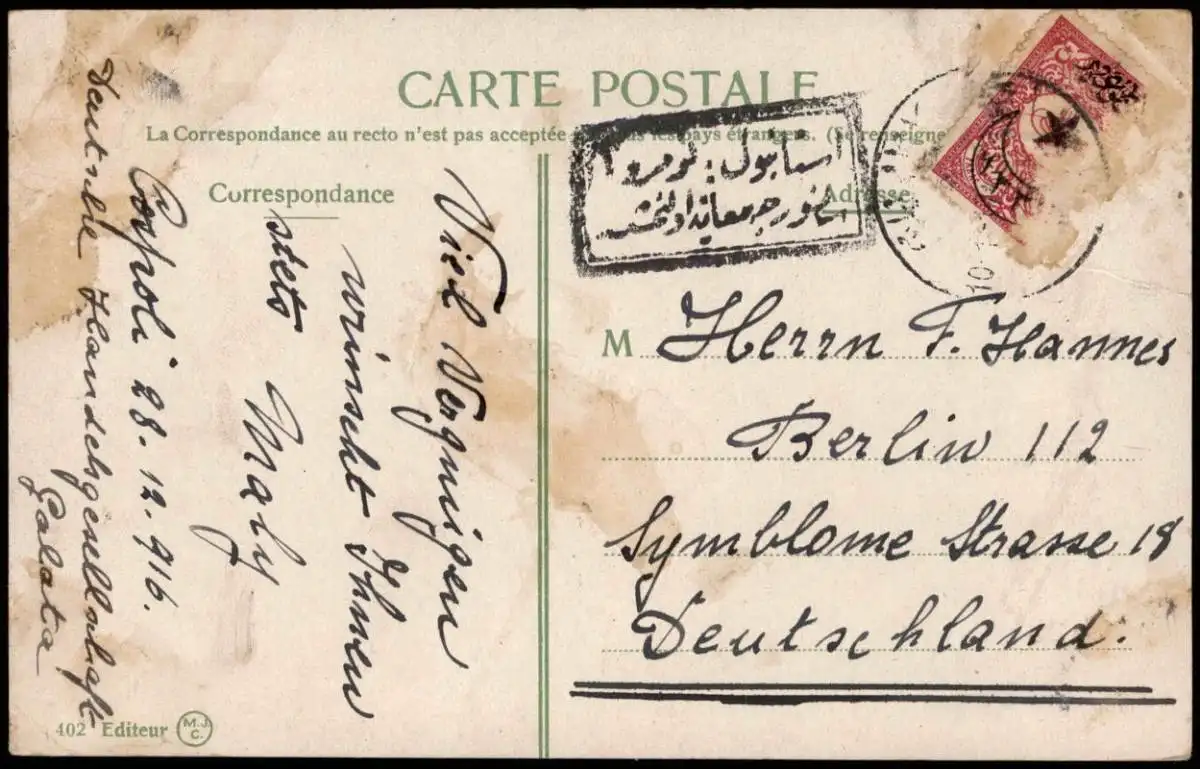 CARTE POSTALE
La Correspondance au recto n'est pas acceptée pays étrangers. (Se renseigne
Correspondance
Adresse
Viel Vergnügen
wünscht Ihnen
stets
Maly
Conpoli 28.12.916.
Deutsche Handelsgesellschaft
Galata
استانبول : نومرو
M Herrn F. Hannes
Berlin 112
Symblome Strasse 18
Deutschland.
402 Editeur M.J.C.